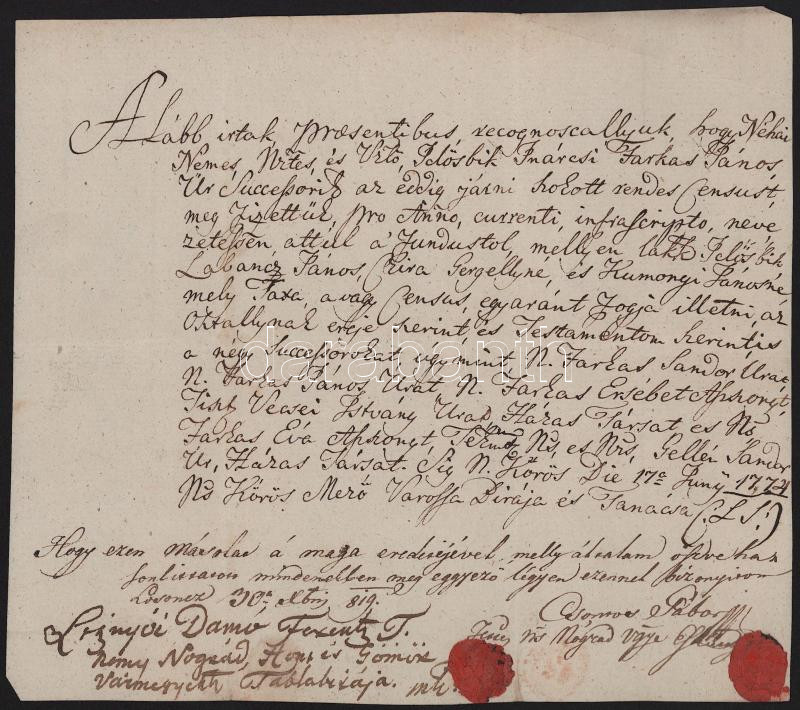 Alább irtak præsentibus recognoscallyuk, hogy Néhai
Nemes, Nztes, és Vtló, Pelősbik Inárcsi Farkas János
Úr Successorit az eddig járni szokott rendes Censust
meg fizettük, pro Anno, currenti, infrascripto, neve
zetessen attul a' fundustol, mellyen lakk Pelősbik
Labancz János, Czira Gergellyné és Kumonyi Jánosné
mely Taxa, avagy Census, egyaránt fogja illetni, az
Osztallynak ereje szerint, és Testamentom szerintis
a négy Successorokat, ugymint N. Farkas Sandor Urat
N. Farkas János, Urat N. Farkas Ersébet Aszszonyt,
Tiszt Vecsei Istvany Urad Házas Társat és Ns
Farkas Éva Aszszonyt, Ns, és Nzs, Gellei Sandor
Úr, Házas Társat. Sig N. Körös Die 17a Junÿ 1774
Ns Körös Mező Varossa Birája és Tanácsa (: L S :)
Hogy ezen másolat á maga eredetijével, melly általam öszve ha
sonlittatott mindenekben meg eggyező légyen ezennel bizonyitom
Losoncz 30a 819.
Csomos Gábor
Ns Nógrad
Damo Ferentz T.
Nemes Nográd, Hont és Gömör
Vármegyék Táblabirája. mk.
darabanth